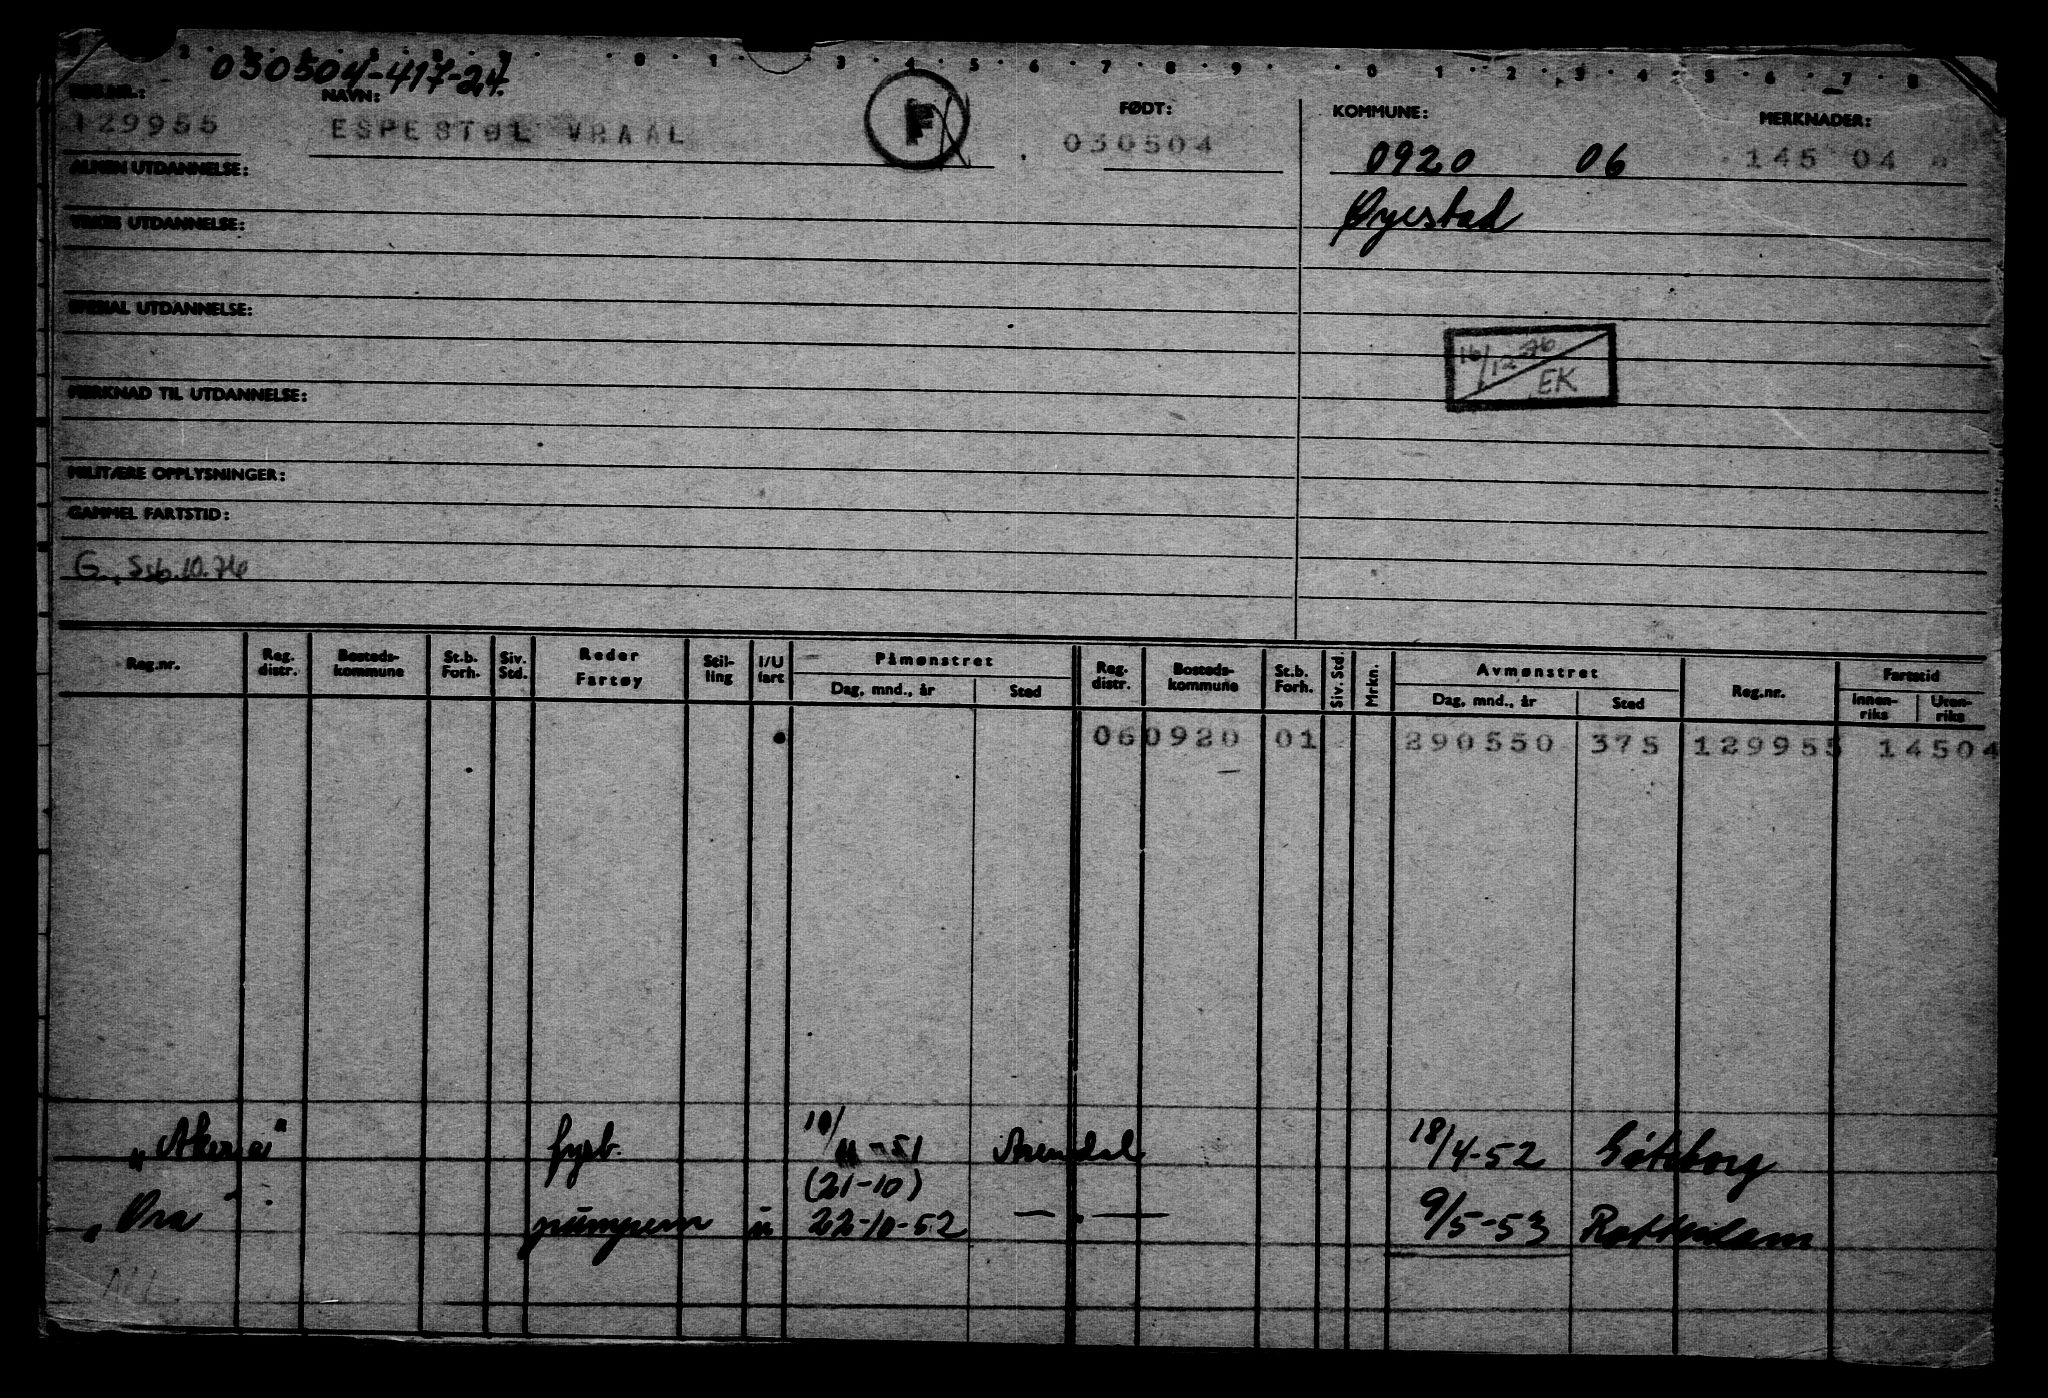 030504-417-27.
REG.NR.: NAVN: F FØDT: KOMMUNE: MERKNADER:
129955 ESPESTØL VRAAL 030504 0920 06 145 04
ALMEN UTDANNELSE:
Øyestad
YRKES UTDANNELSE:
SPESIAL UTDANNELSE:
16/12 76
EK
MERKNAD TIL UTDANNELSE:
MILITÆRE OPPLYSNINGER:
GAMMEL FARTSTID:
G. Ssb. 10.76
Reg.nr. Reg. distr. Bosteds- kommune St.b. Forh. Siv. Std. Reder Fartøy Stil- ling I/U fart Påmønstret Dag, mnd., år Sted Reg. distr. Bosteds- kommune St.b. Forh. Siv. Std. Mrkn. Avmønstret Dag, mnd., år Sted Reg.nr. Fartstid Innen- riks Uten- riks
06 0920 01 290550 375 129955 14504
fyrb. 10/11-51 Arendal 18/4-52 Göteborg
(21-10)
pumpem u 22-10-52 — " — 9/5-53 Rotterdam